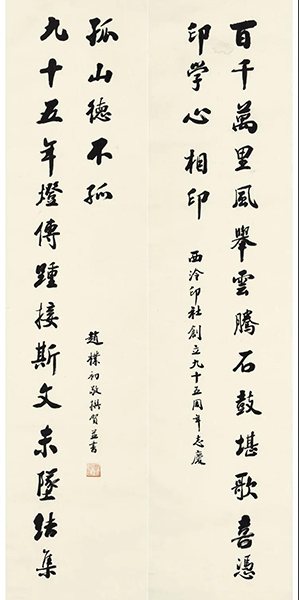 百千萬里風舉雲騰石鼓堪歌喜憑
印學心相印
西泠印社創立九十五周年志慶
九十五年燈傳踵接斯文未墜結集
孤山德不孤
趙樸初敬撰賀並書